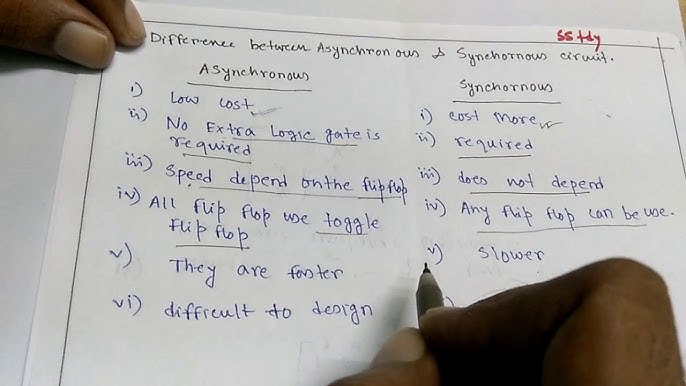 SStdy
Difference between Asynchronous & Synchornous circuit.
Asynchronous
i) Low cost
ii) No Extra Logic gate is
required
iii) Speed depend on the flipflop
iv) All flip flop use toggle
flip flop
v) They are faster
vi) difficult to design
Synchornous
i) cost more
ii) required
iii) does not depend
iv) Any flip flop can be use.
v) Slower